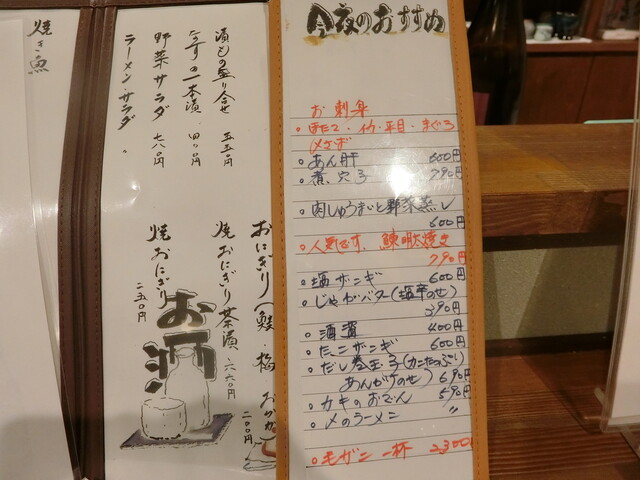 今夜のおすすめ
お刺身
・ほたて・イカ・平目・まぐろ
〆さば
・あん肝 600円
・煮穴子 790円
・肉しゅうまいと野菜蒸し
600円
・人気です、鰊明太焼き
790円
・塩ザンギ 600円
・じゃがバター(塩辛のせ)
390円
・酒盗 400円
・たこザンギ 600円
・だし巻玉子(カニたっぷり)
あんがけのせ) 690円
・カキのおでん 590円
・〆のラーメン 〃
・毛ガニ 一杯 2300円
漬もの盛り合せ 五五〇円
なすの一本漬 四〇〇円
野菜サラダ 七八〇円
ラーメンサラダ 〃
おにぎり(鮭・梅・おかか 二〇〇円
焼おにぎり茶漬 六六〇円
焼おにぎり 二五〇円
お酒
焼き魚